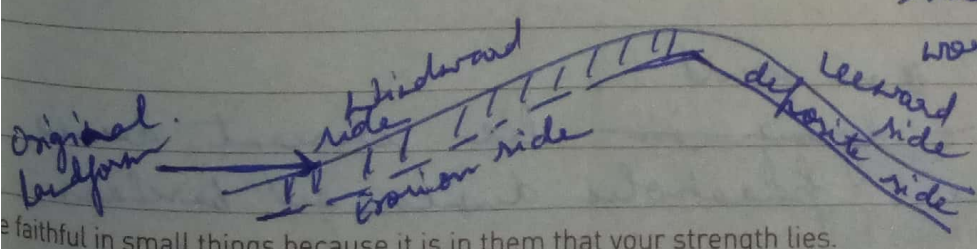 original
landform
Windward
side
Erosion side
Leeward
side
deposite side
e faithful in small things because it is in them that your strength lies.